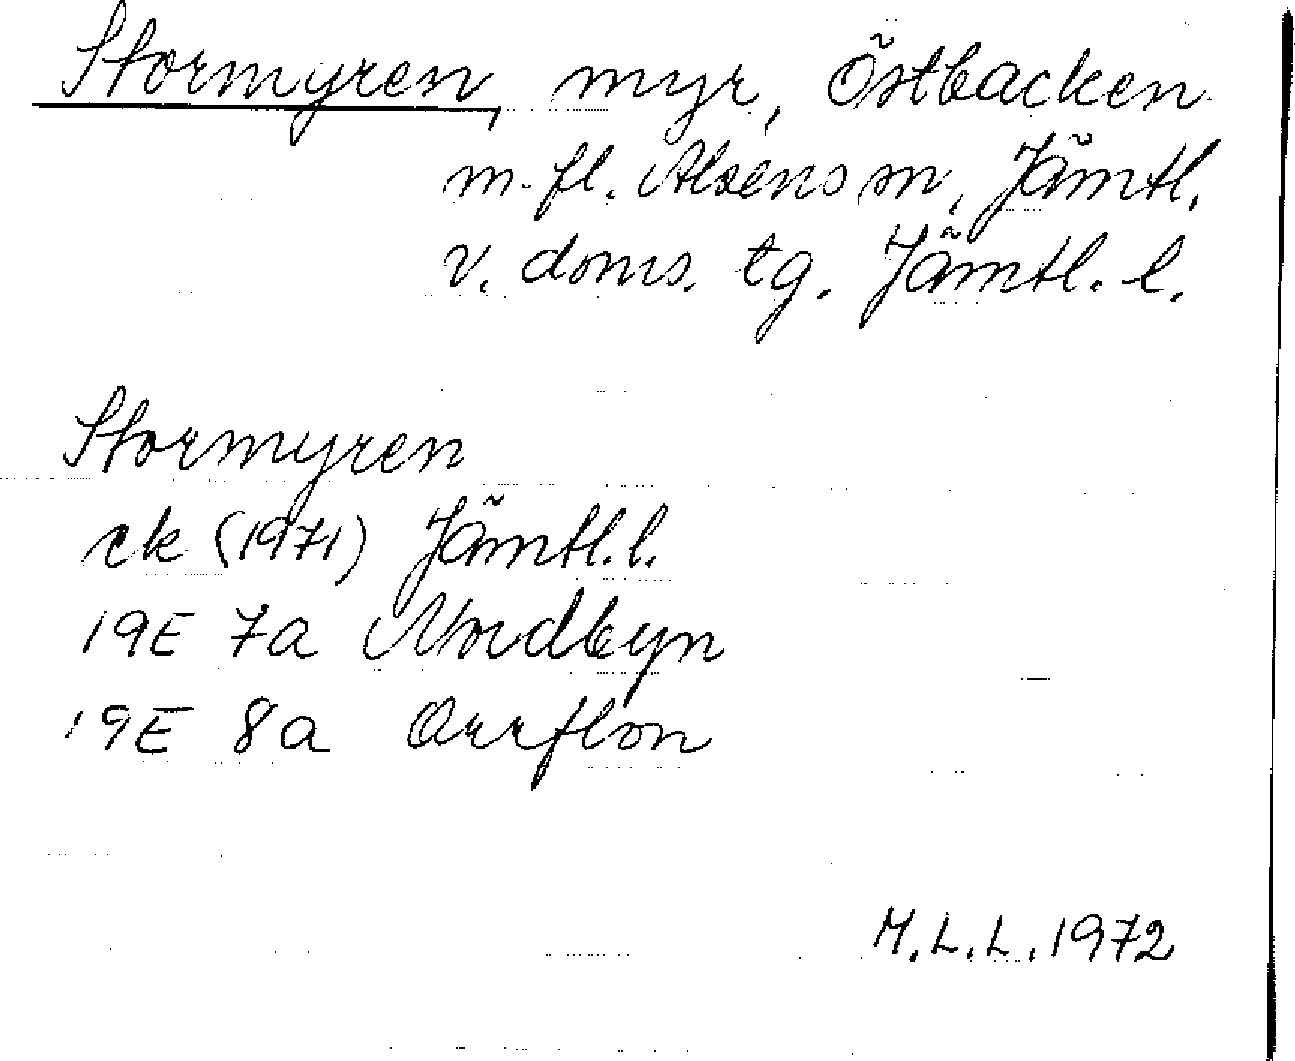 Stormyren, myr, Östbacken
m. fl. Alsens sn, Jämtl.
v. doms. tg. Jämtl. l.
Stormyren
ek (1971) Jämtl. l.
19E 7a Nordbyn
19E 8a Orrflon
M.L.L. 1972